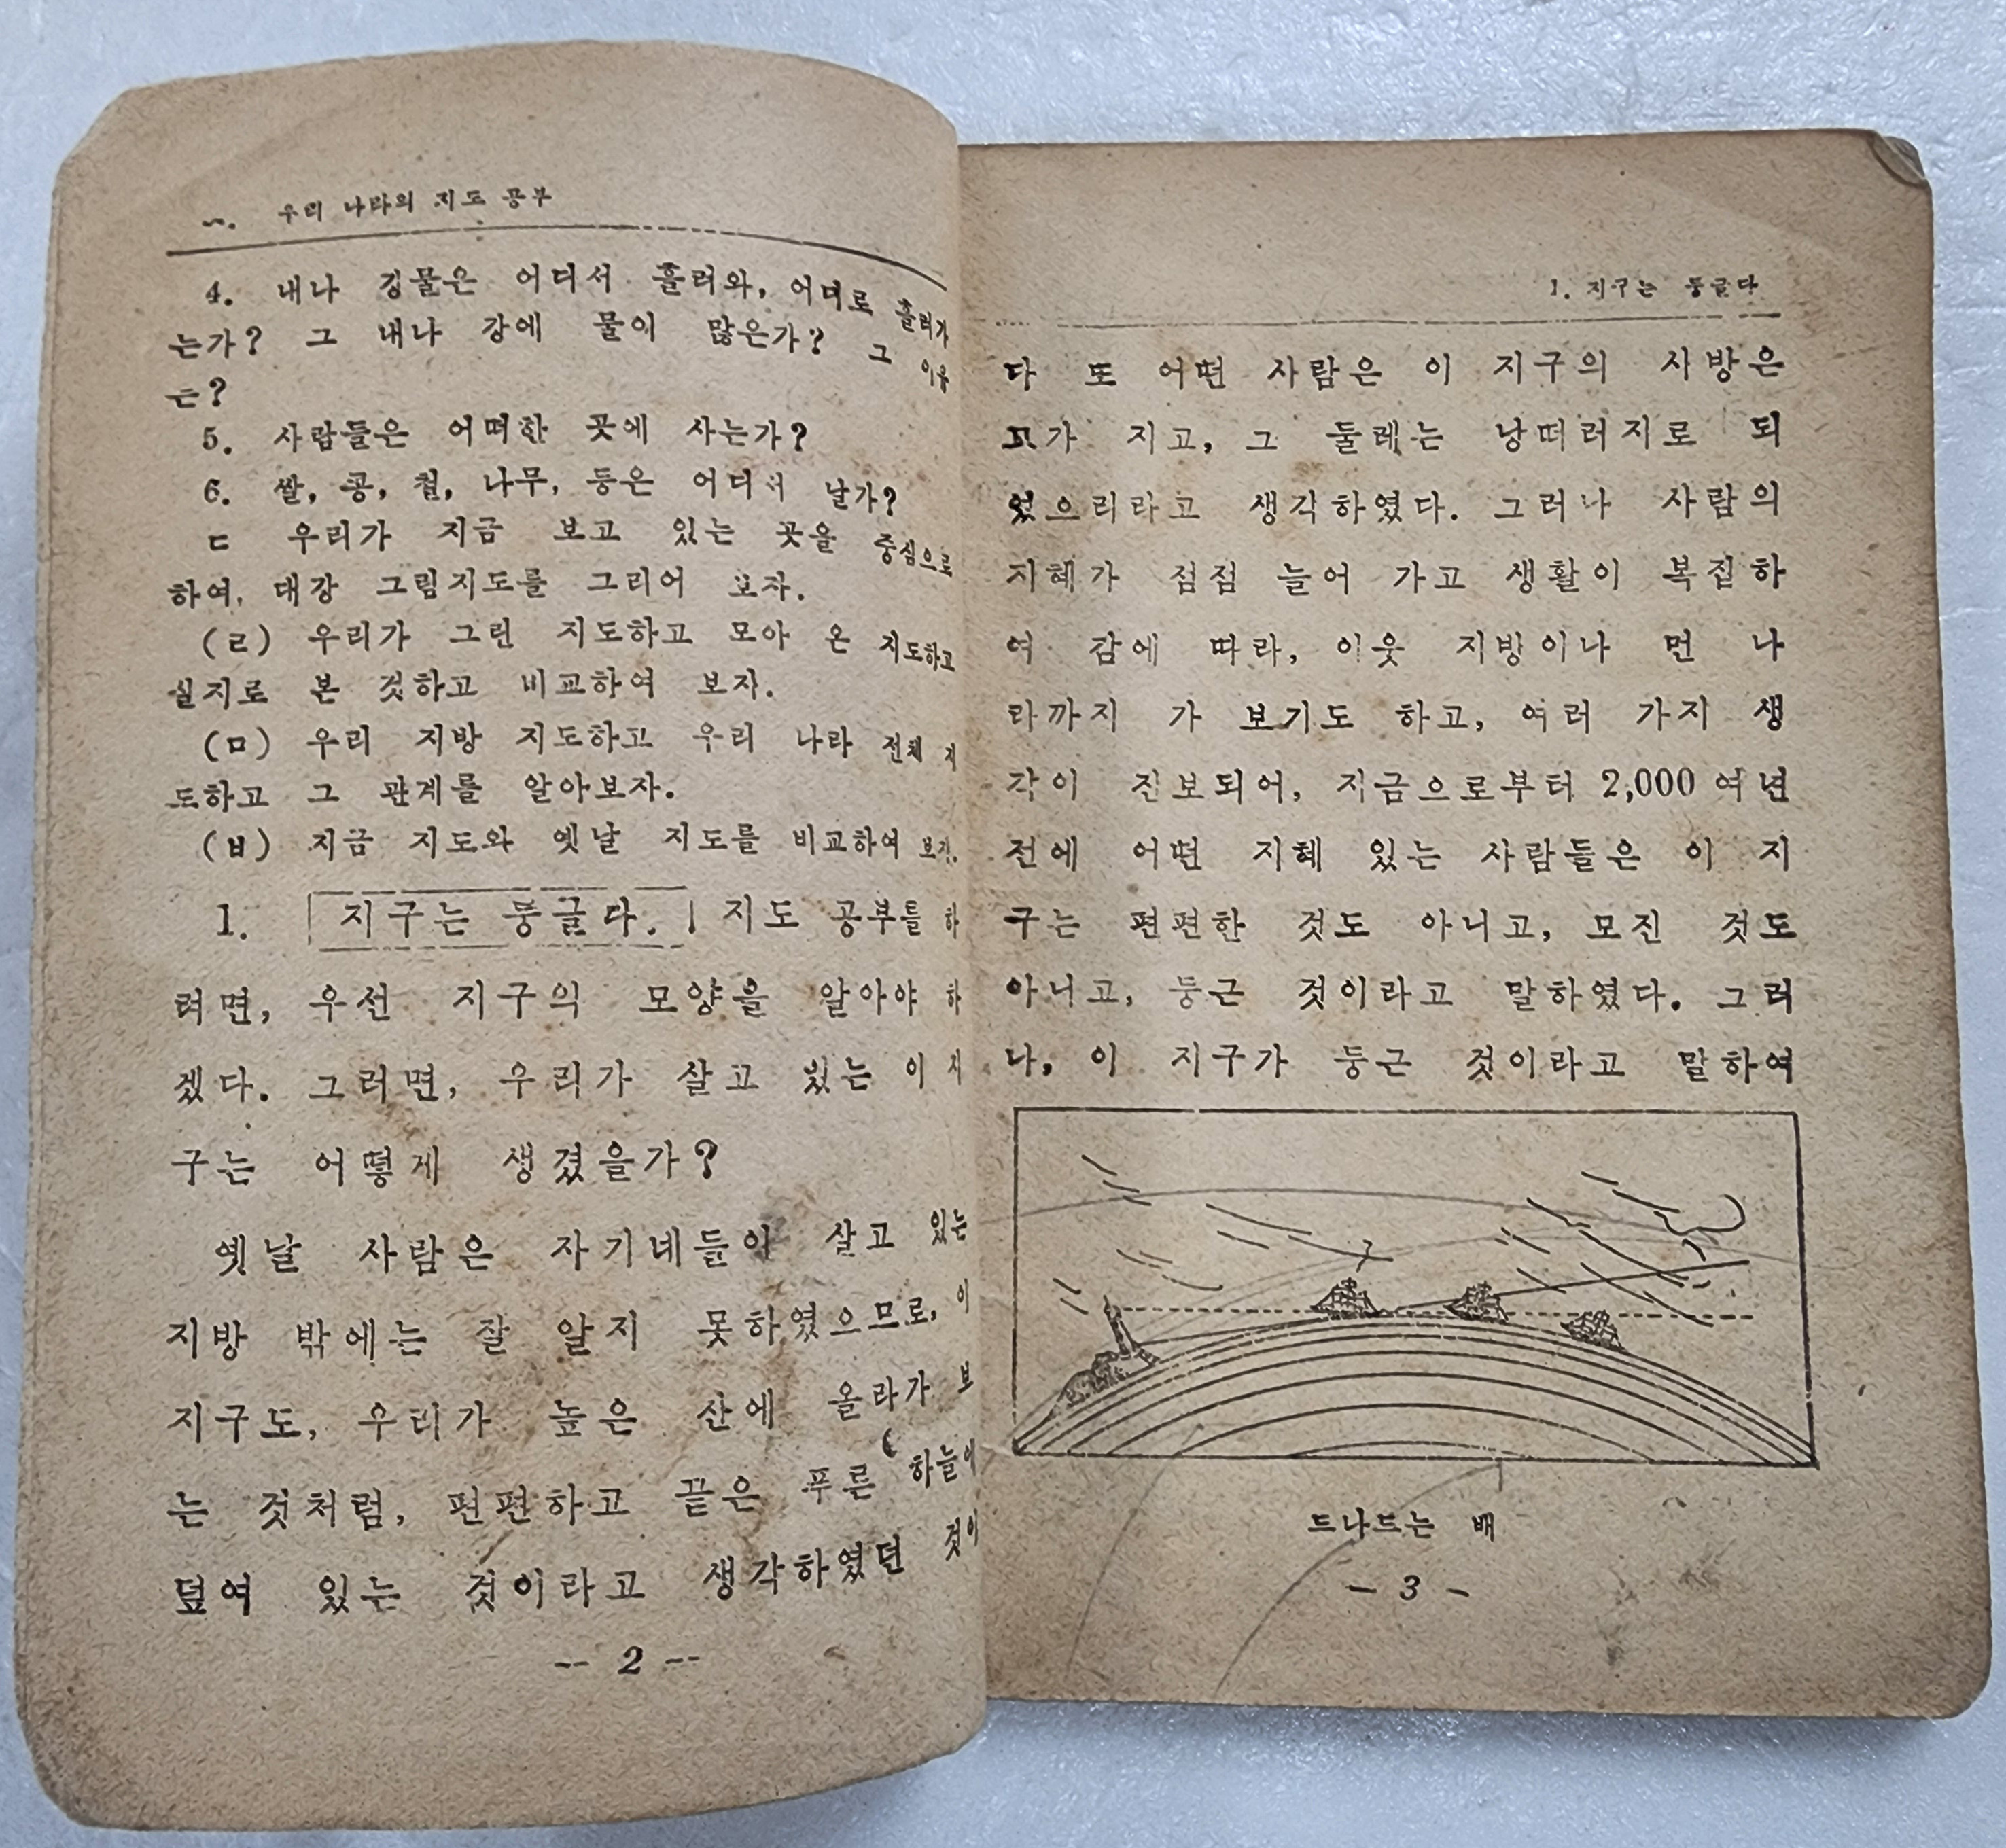 一. 우리 나라의 지도 공부
4. 내나 강물은 어디서 흘러와, 어데로 흘러가
는가? 그 내나 강에 물이 많은가? 그 이유
는?
5. 사람들은 어떠한 곳에 사는가?
6. 쌀, 콩, 철, 나무, 등은 어디서 날가?
ㄷ 우리가 지금 보고 있는 곳을 중심으로
하여, 대강 그림지도를 그리어 보자.
(ㄹ) 우리가 그린 지도하고 모아 온 지도하고
실지로 본 것하고 비교하여 보자.
(ㅁ) 우리 지방 지도하고 우리 나라 전체 지
도하고 그 관계를 알아보자.
(ㅂ) 지금 지도와 옛날 지도를 비교하여 보자.
1. 지구는 둥글다. 지도 공부를 하
려면, 우선 지구의 모양을 알아야 하
겠다. 그러면, 우리가 살고 있는 이 지
구는 어떻게 생겼을가?
옛날 사람은 자기네들이 살고 있는
지방 밖에는 잘 알지 못하였으므로, 이
지구도, 우리가 높은 산에 올라가 보
는 것처럼, 편편하고 끝은 푸른 하늘에
덮여 있는 것이라고 생각하였던 것이
-- 2 --
1. 지구는 둥글다
다 또 어떤 사람은 이 지구의 사방은
모가 지고, 그 둘레는 낭떠러지로 되
었으리라고 생각하였다. 그러나 사람의
지혜가 점점 늘어 가고 생활이 복잡하
여 감에 따라, 이웃 지방이나 먼 나
라까지 가 보기도 하고, 여러 가지 생
각이 진보되어, 지금으로부터 2,000 여년
전에 어떤 지혜 있는 사람들은 이 지
구는 편편한 것도 아니고, 모진 것도
아니고, 둥근 것이라고 말하였다. 그러
나, 이 지구가 둥근 것이라고 말하여
드나드는 배
- 3 -